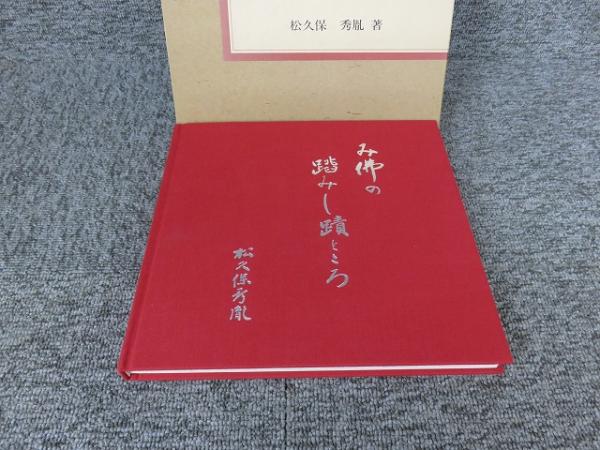 松久保　秀胤 著
み佛の
踏みし蹟ところ
松久保秀胤